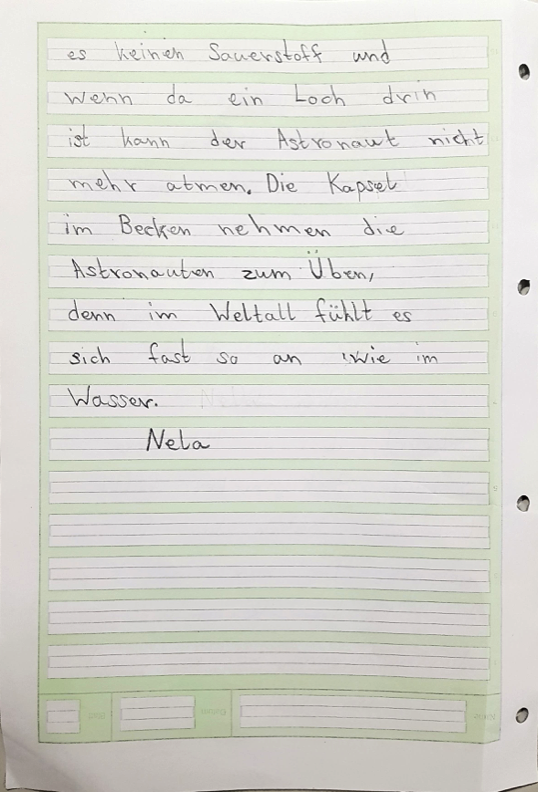 es keinen Sauerstoff und
wenn da ein Loch drin
ist kann der Astronaut nicht
mehr atmen. Die Kapsel
im Becken nehmen die
Astronauten zum Üben,
denn im Weltall fühlt es
sich fast so an wie im
Wasser.
Nela